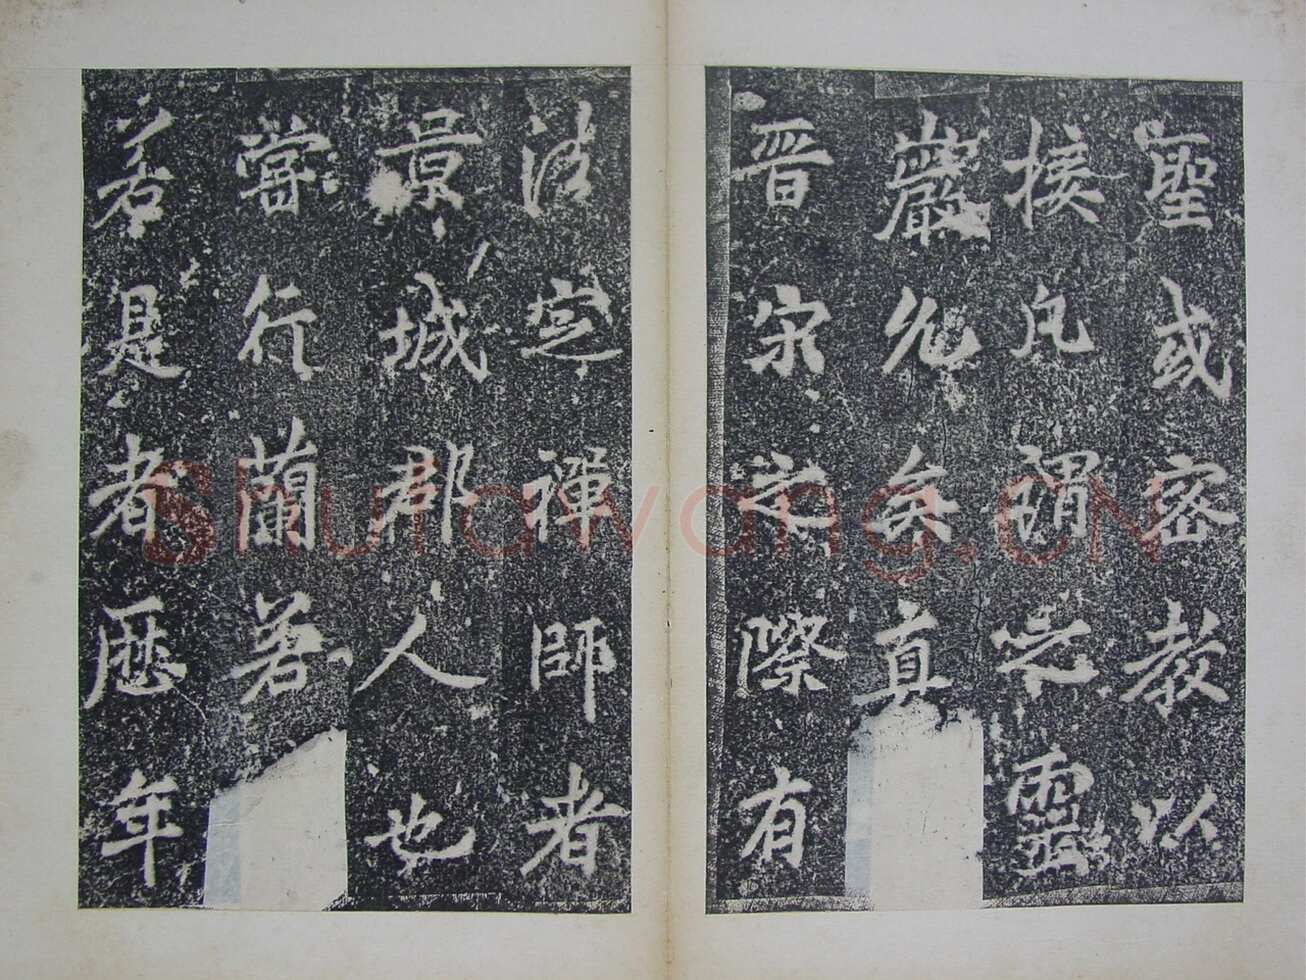 聖或密教以
接凡謂之靈
巖允矣真
晉宋之際有
法定禪師者
景城郡人也
嘗行蘭若
若是者歷年
Shufawang.CN